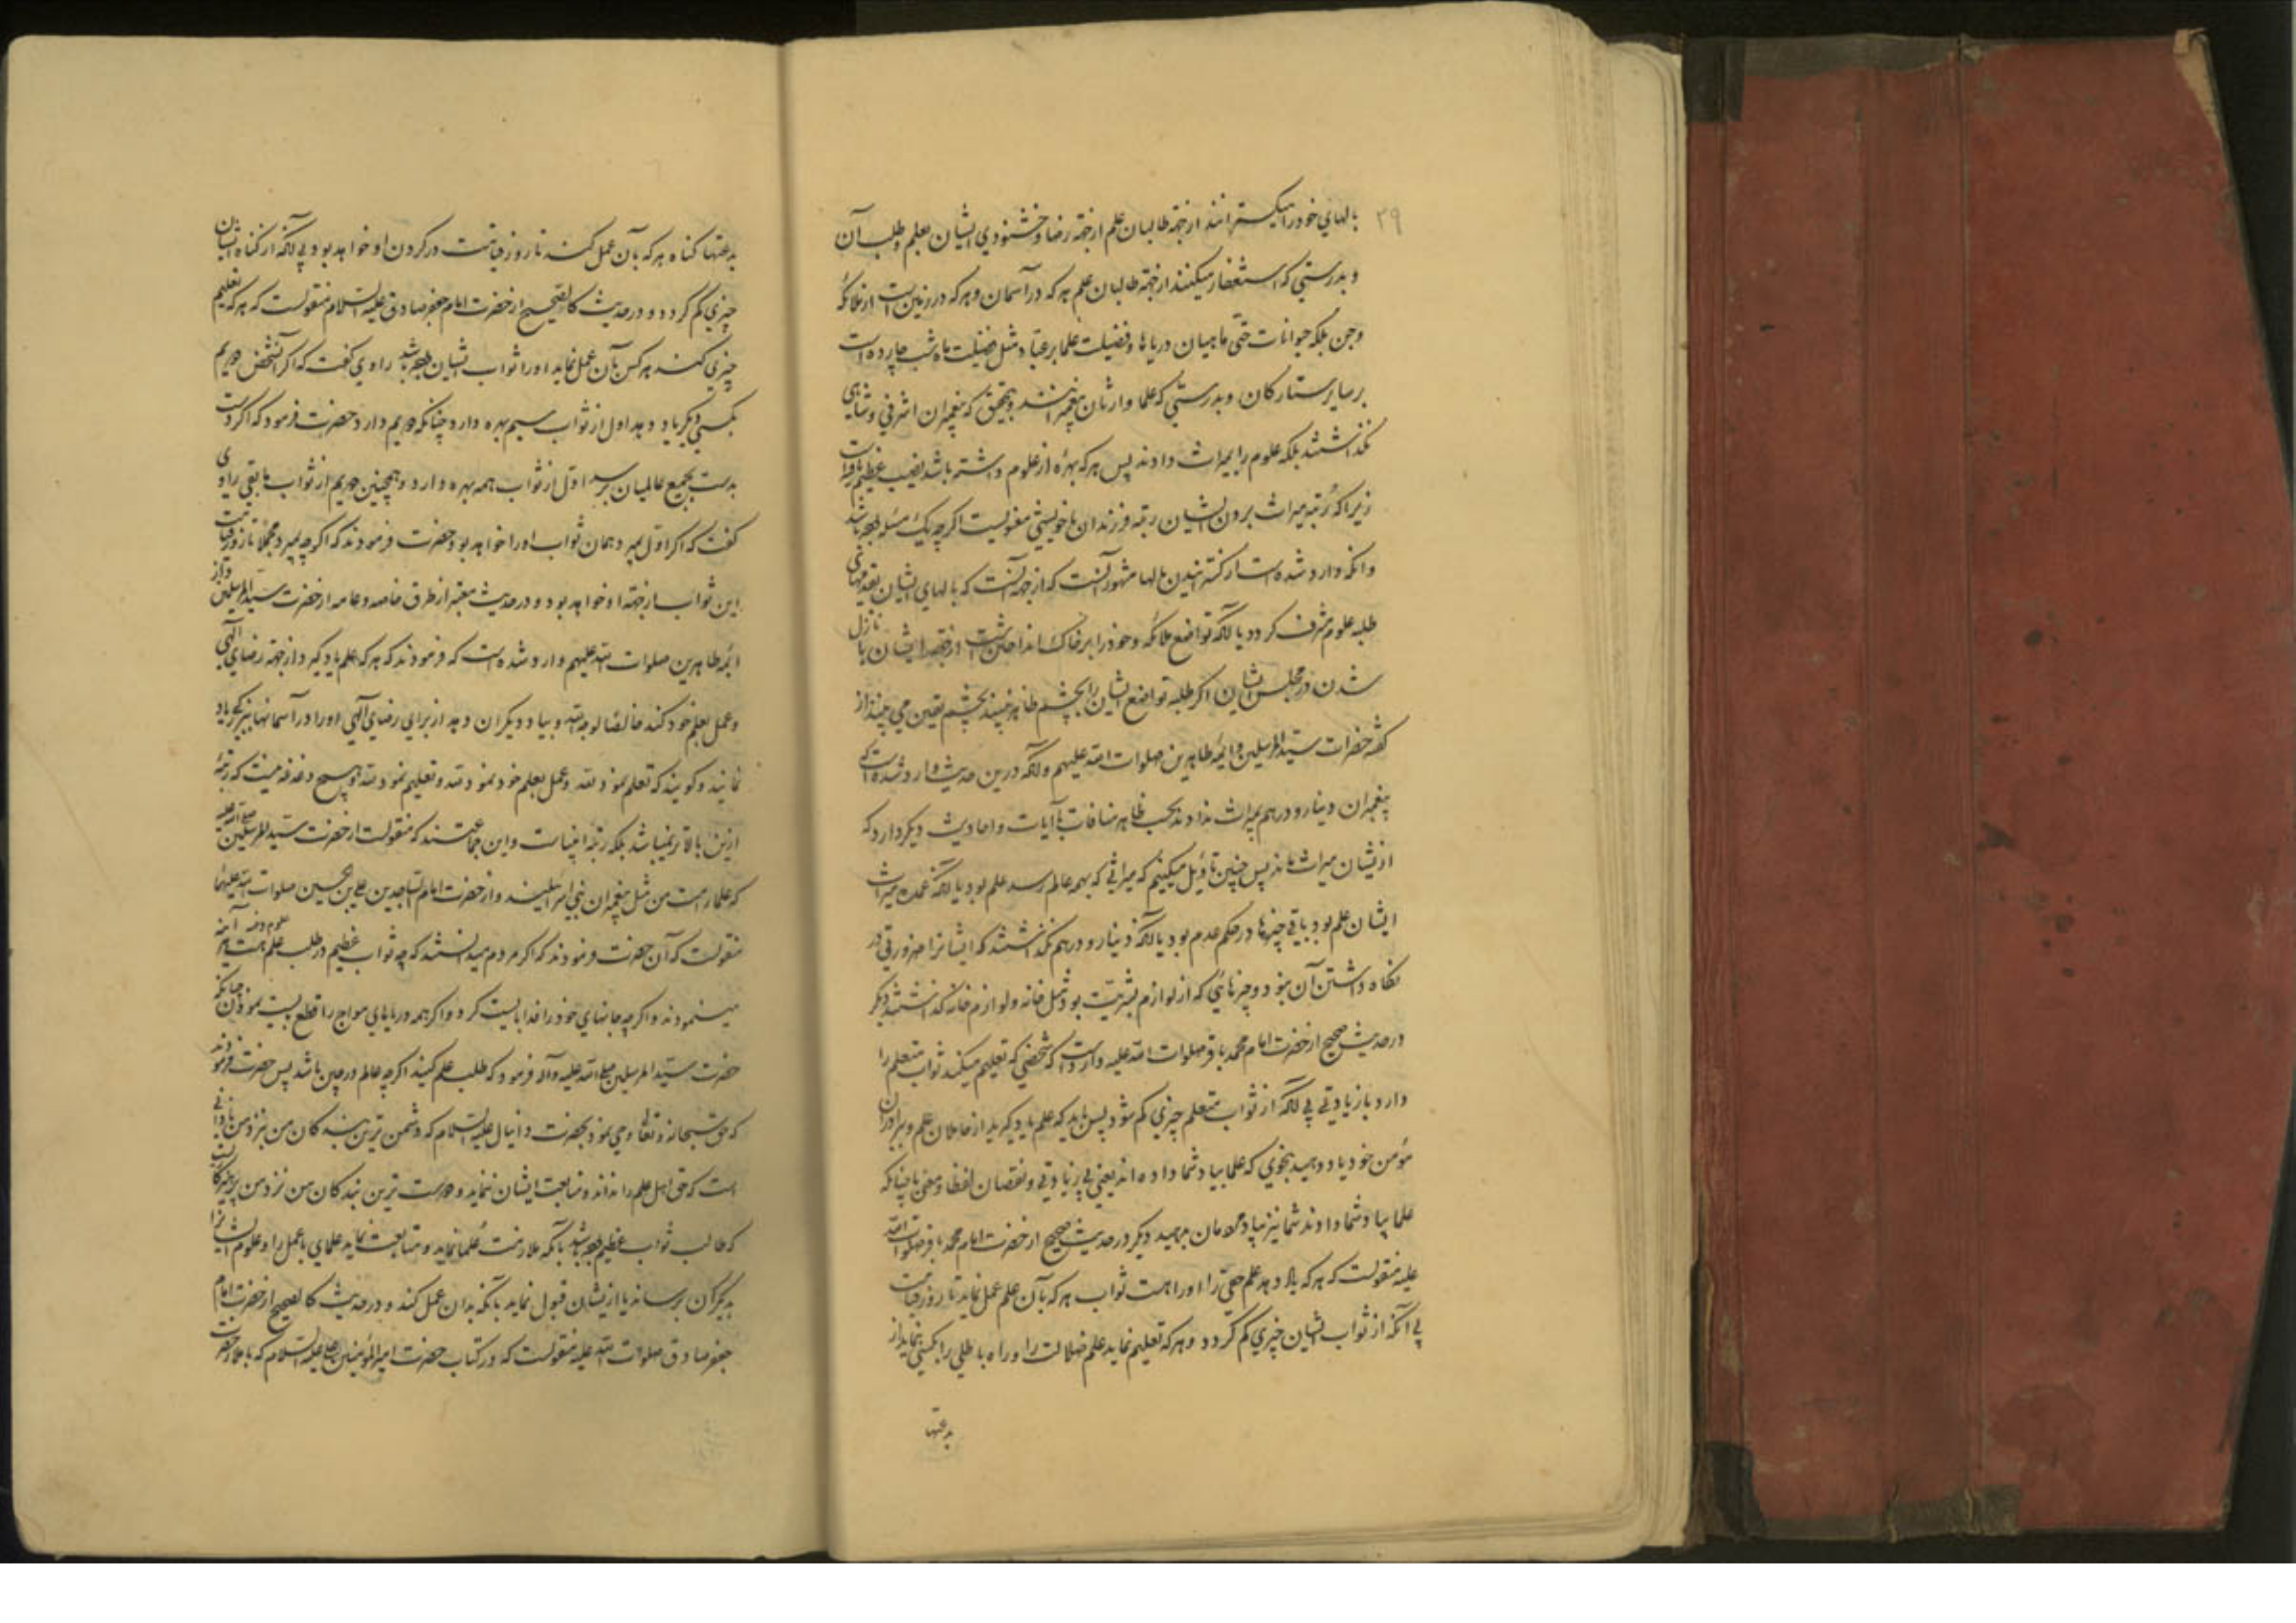 ۳۹
بالهای خود را میکسترانند از جهة طالبان علم از جهة رضا و خشنودی ایشان بعلم و طلب آن
و بدرستی که استغفار میکنند از جهة طالبان علم هر که در آسمان و هر که در زمین است از ملائکه
و جن بلکه حیوانات حتی ماهیان دریاها و فضیلت علما بر عباد مثل فضیلت ماه شب چارده است
بر سایر ستارکان و بدرستی که علما وارثان پیغمبرانند و بتحقیق که پیغمبران اشرفی و شاهی
نکذاشتند بلکه علوم را بمیراث دادند پس هر که بهرهٔ از علوم داشته باشد نصیب عظیم یافته است
زیرا که رتبه میراث بردن ایشان رتبه فرزندان خویشی معنویست اکرچه یک مسئله باشد
و آنکه وارد شده است از کسترانیدن بالها مشهور آنست که از جهة آنست که بالهای ایشان بقدمهای
طلبه علوم مشرف کردد یا آنکه تواضع ملائکه و خود را بر خاک انداختن است از جهة ایشان یا نازل
شدن در مجلس ایشان اکر طلبه تواضع ایشان را بچشم ظاهر نبینند بچشم یقین می بینند از
کفته حضرات سید المرسلین و ایمه طاهرین صلوات الله علیهم و آنکه درین حدیث وارد شده است که
پیغمبران دینار و درهم بمیراث ندادند بحسب ظاهر منافات با آیات و احادیث دیکر دارد که
ازیشان میراث ماند پس چنین تاویل میکنیم که میراثی که بهمه عالم رسد علم بود یا آنکه عمده میراث
ایشان علم بود و باقی چیزها در حکم عدم بود یا آنکه دینار و درهم نکذاشتند که ایشانرا ضرورتی در
نکاه داشتن آن نبود و چیزهایی که از لوازم بشریت بود مثل خانه و لوازم خانه کذاشتند دیکر
در حدیث صحیح از حضرت امام محمد باقر صلوات الله علیه وارد است که شخصی که تعلیم میکند ثواب متعلم را
دارد با زیادتی بی آنکه از ثواب متعلم چیزی کم شود پس باید که علم یاد کیرید از حاملان علم و برادران
مؤمن خود یاد دهید بنحوی که علما بیاد شما داده اند یعنی بی زیادتی و نقصان لفظا و معنی یا چنانکه
علما بیاد شما دادند شما نیز بیاد مردمان بدهید دیکر در حدیث صحیح از حضرت امام محمد باقر صلوات الله
علیه منقولست که هر که یاد دهد علم حقی را او را هست ثواب هر که بآن علم عمل نماید تا روز قیامت
بی آنکه از ثواب ایشان چیزی کم کردد و هر که تعلیم نماید علم ضلالت را و راه باطلی را بکسی نماید از
بدعتها
بدعتها کناه هر که بآن عمل کند تا روز قیامت در کردن او خواهد بود بی آنکه از کناه ایشان
چیزی کم کردد و در حدیث کالصحیح از حضرت امام جعفر صادق علیه السلام منقولست که هر که تعلیم
چیزی کند هر کس بآن عمل نماید او را ثواب ایشان باشد راوی کفت که اکر آن شخص دویم
بکسی دیکر یاد دهد اول از ثواب سیم بهره دارد چنانکه دویم دارد حضرت فرمود که اکر دست
بدست بجمیع عالمیان برسد اول از ثواب همه بهره دارد و همچنین دویم از ثواب مابقی راوی
کفت که اکر اول بمیرد همان ثواب او را خواهد بود حضرت فرمودند که اکرچه بمیرد مجملا تا روز قیامت
این ثواب از جهة او خواهد بود و در حدیث معتبر از طرق خاصه و عامه از حضرت سید المرسلین و از
ایمه طاهرین صلوات الله علیهم وارد شده است که فرمودند که هر که علم یاد کیرد از جهة رضای الهی
و عمل بعلم خود کند خالصا لوجه الله و بیاد دیکران دهد از برای رضای الهی او را در آسمانها ببزرکی یاد
نمایند و کویند که تعلم نمود لله و عمل بعلم خود نمود لله و تعلیم نمود لله و هیچ دغدغه نیست که رتبهٔ
ازین بالاتر نمیباشد بلکه رتبه انبیاست و این جماعتند که منقولست از حضرت سید المرسلین صلی الله علیه
که علماء امت من مثل پیغمبران بنی اسرائیلند و از حضرت امام الساجدین علی بن الحسین صلوات الله علیهما
منقولست که آن حضرت فرمودند که اکر مردم میدانستند که چه ثواب عظیم در طلب علم هست هر آینه
مینمودند و اکرچه جانهای خود را فدا بایست کرد و اکر همه دریاهای مواج را قطع بایست نمودن چنانکه
حضرت سید المرسلین صلی الله علیه وآله فرمود که طلب علم کنید اکرچه عالم در چین باشد پس حضرت فرمودند
که حق سبحانه و تعالی وحی نمود بحضرت دانیال علیه السلام که دشمن ترین بندکان من نزد من نادانی
است که حق اهل علم را نداند و متابعت ایشان ننماید و دوست ترین بندکان من نزد من پرهیزکاریست
که طالب ثواب عظیم باشد بآنکه ملازمت علما نماید و متابعت نماید علمای با عمل را و علوم ایشانرا
بدیکران برساند یا ازیشان قبول نماید بآنکه بدان عمل کند و در حدیث کالصحیح از حضرت امام
جعفر صادق صلوات الله علیه منقولست که در کتاب حضرت امیر المؤمنین علی علیه السلام که باملاء حضرت